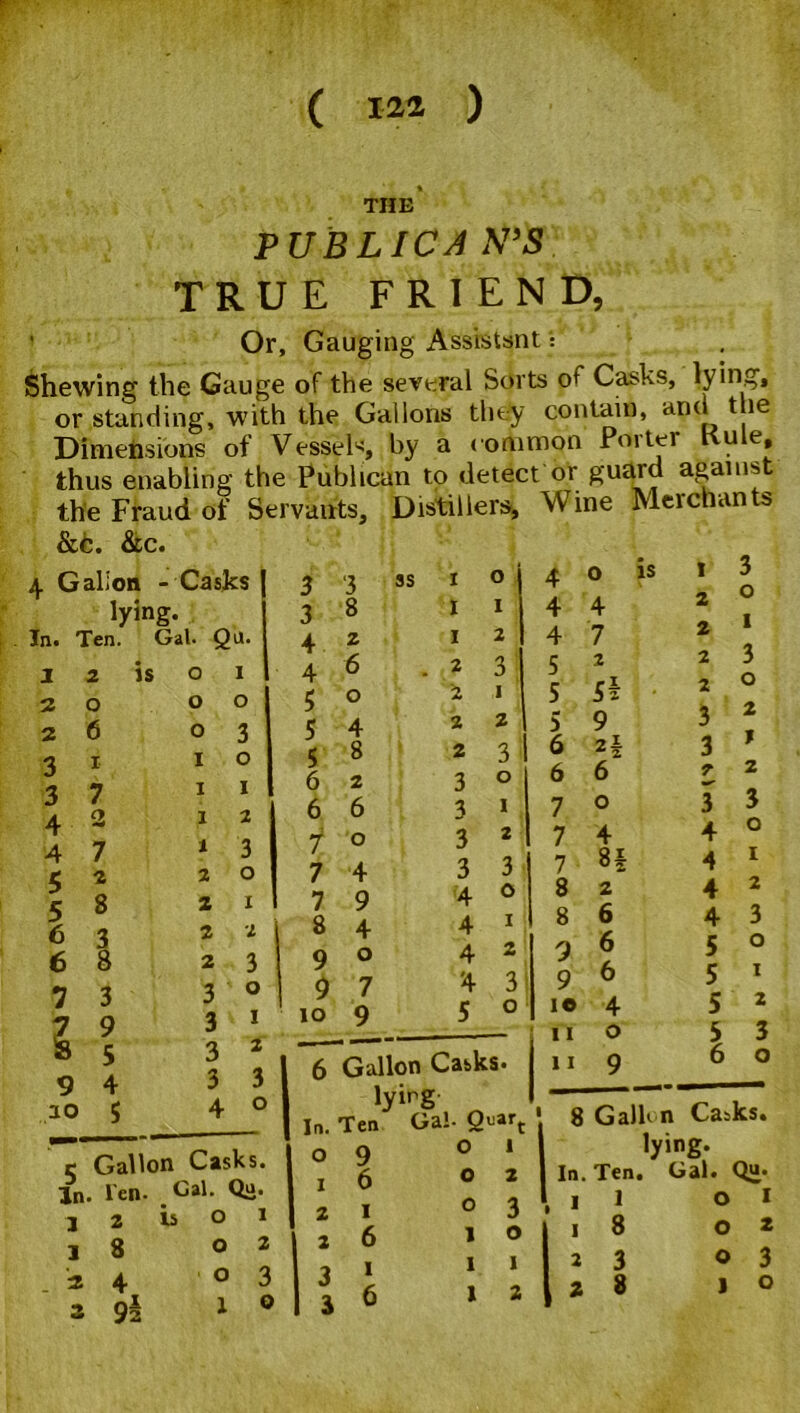 ( 122 )
THE
PUBLICAN'S
TRUE FRIEND,
Or, Gauging Assistsnt:
Shewing the Gauge of the several Sorts of Casks, lying,
or standing, with the Gallons they contain, and the
Dimensions of Vessels, by a common Porter Rule,
thus enabling the Publican to detect or guard against
the Fraud of Servants, Distillers, Wine Merchants
&c. &c.
4 Galion - Casks
lying.
In. Ten. Gal. Qu.
1 2 is 0 1
2 0 0 0
2 6 0 3
3 1 1 0
3 7 1 1
4 2 1 2
4 7 1 3
5 2 2 0
5 8 2 1
6 3 2 2
6 8 2 3
7 3 3 0
7 9 3 1
8 5 3 2
9 4 3 3
10 5 4 0
5 Gallon Casks.
In. Ten. Gal. Qu.
1 2 is 0 1
1 8 0 2
2 4 0 3
2 9½ 1 0
3 3 as 1 0
3 8 1 1
4 2 1 2
4 6 2 3
5 0 2 1
5 4 2 2
5 8 2 3
6 2 3 0
6 6 3 1
7 0 3 2
7 4 3 3
7 9 4 0
8 4 4 1
9 0 4 2
9 7 4 3
10 9 5 0
6 Gallon Casks.
lying
In. Ten Gal. Quart
0 9 0 1
1 6 0 2
2 1 0 3
2 6 1 0
3 1 1 1
3 6 1 2
4 0 is 1 3
4 4 2 0
4 7 2 1
5 2 2 3
5 5½ 2 0
5 9 3 2
6 2½ 3 1
6 6 2
7 0 3 3
7 4 4 0
7 8½ 4 1
8 2 4 2
8 6 4 3
9 6 5 0
9 6 5 1
10 4 5 2
11 0 5 3
11 9 6 0
8 Gallon Casks.
lying.
In. Ten. Gal. Qu.
1 1 0 1
1 8 0 2
2 3 0 3
2 8 1 0